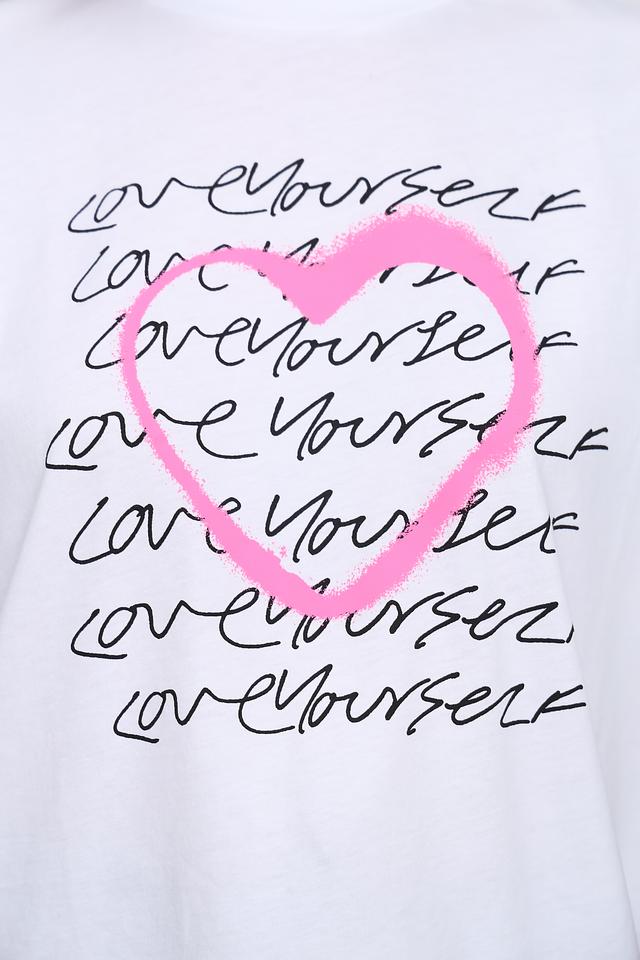 Love Yourself
Love Yourself
Love Yourself
Love Yourself
Love Yourself
Love Yourself
Love Yourself